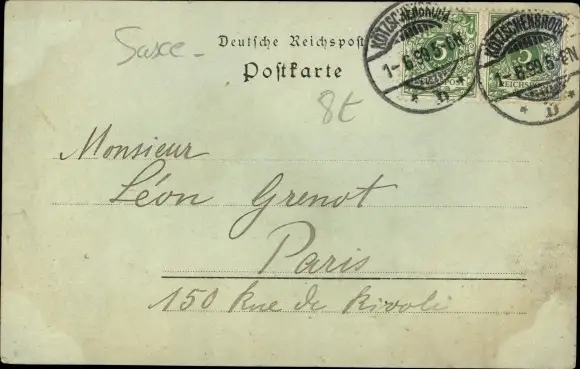 Saxe -
Deutsche Reichspost
Postkarte
8t
KÖTZSCHENBRODA
1-6.90.5-6N
* b *
5
REICHSPOST
KÖTZSCHENBRODA
1-6.90.5-6N
* b *
5
REICHSPOST
Monsieur
Léon Grenot
Paris
150 Rue de Rivoli